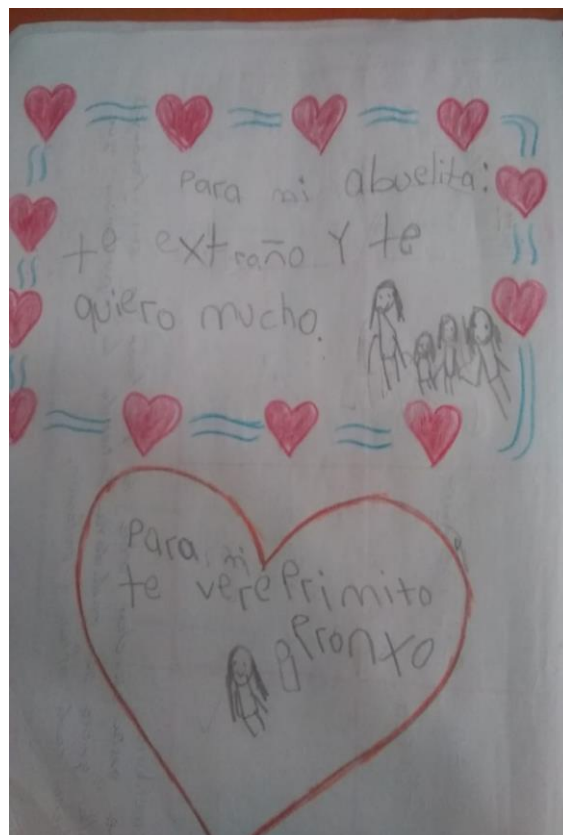 Para mi abuelita:
te extraño Y te
quiero mucho.
Para mi
te veré Primito
Pronxo